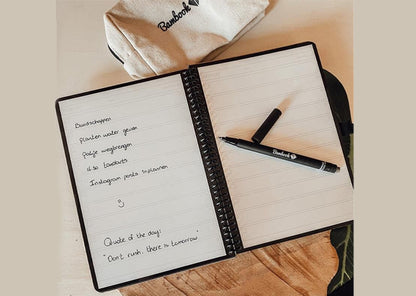 Bambook
Boodschappen
planten water geven
pasje wegbrengen
Instagram posts inplannen
Quote of the day:
"Don't rush, there is tomorrow"
Bambook